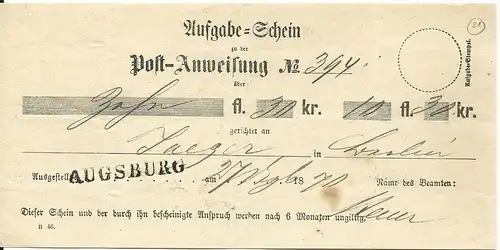 21
Aufgabe=Schein
zu der
Post-Anweisung No. 394.
über
Zehn fl. 30 kr. 10 fl. 30 kr.
Aufgabs-Stempel.
gerichtet an
Jaeger in
Ausgestellt AUGSBURG am 27 1870 Name des Beamten:
Dieser Schein und der durch ihn bescheinigte Anspruch werden nach 6 Monaten ungiltig.
B 46.